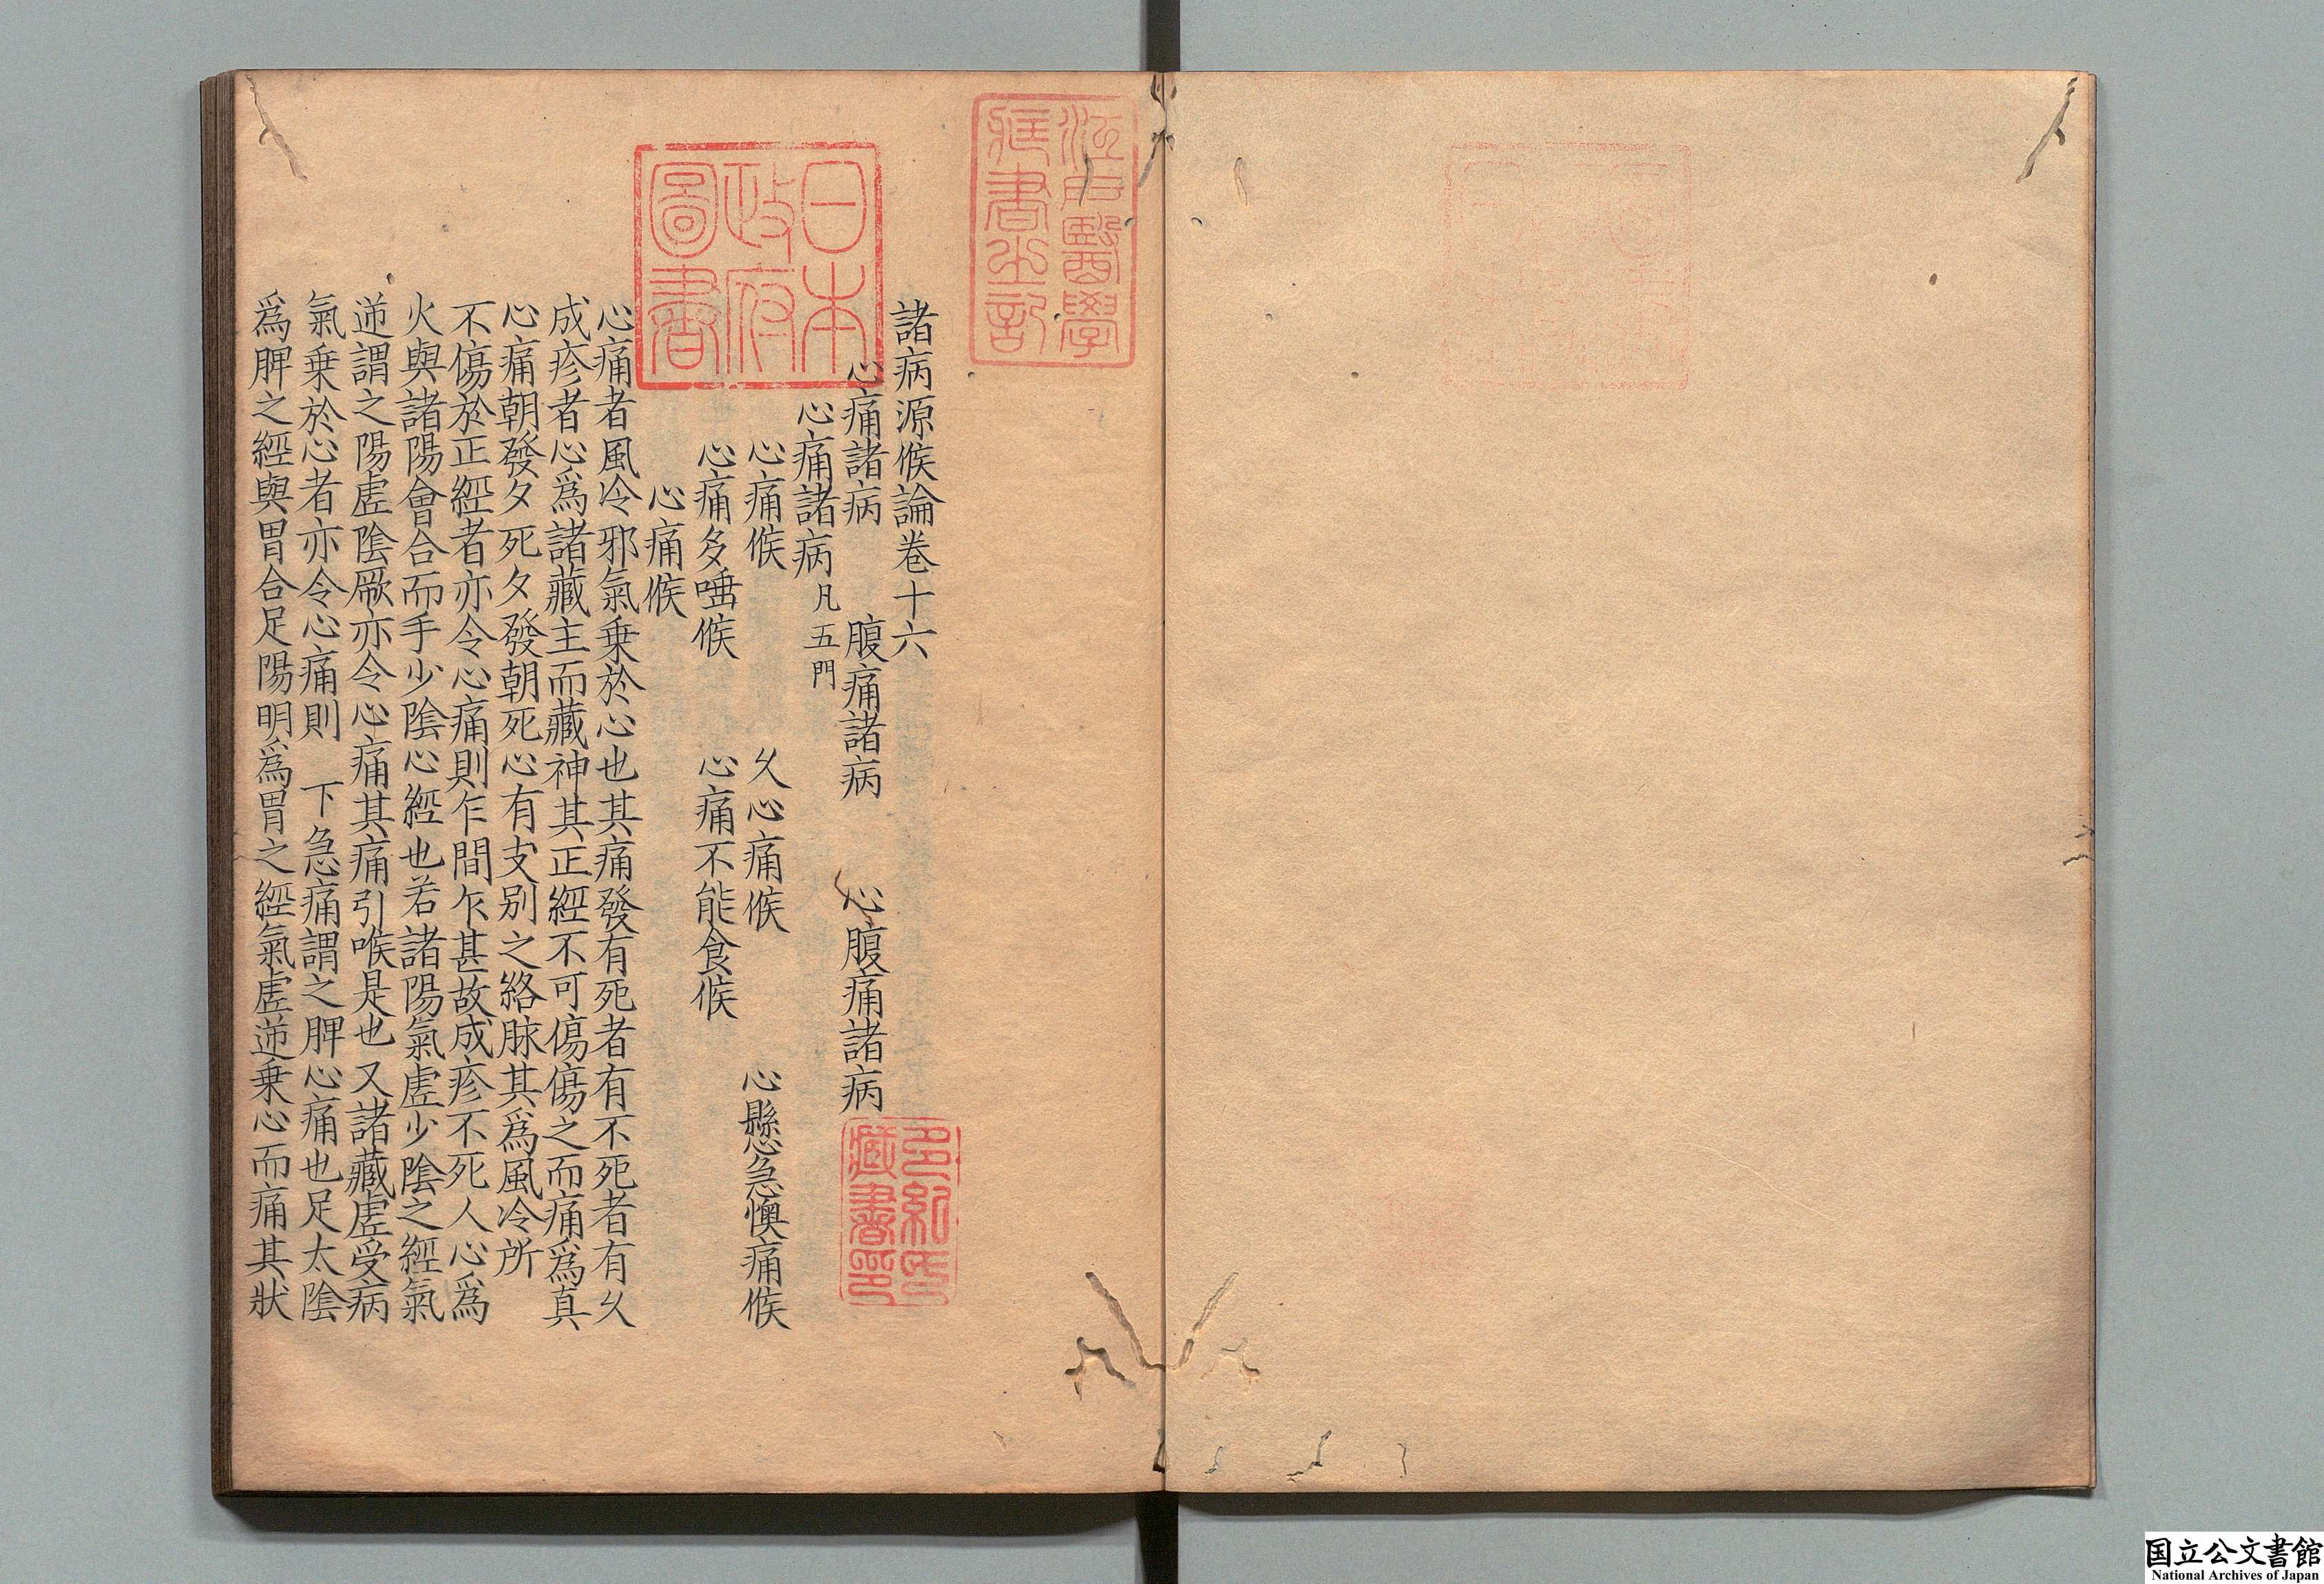 諸病源候論卷十六
心痛諸病　腹痛諸病　心腹痛諸病
心痛諸病凡五門
心痛候　久心痛候　心懸急懊痛候
心痛多唾候　心痛不能食候
心痛候
心痛者風冷邪氣乗於心也其痛發有死者有不死者有久
成疹者心爲諸藏主而藏神其正經不可傷傷之而痛爲真
心痛朝發夕死夕發朝死心有支别之絡脉其爲風冷所
不傷於正經者亦令心痛則乍間乍甚故成疹不死人心爲
火與諸陽會合而手少陰心經也若諸陽氣虚少陰之經氣
逆謂之陽虚陰厥亦令心痛其痛引喉是也又諸藏虚受病
氣乗於心者亦令心痛則　下急痛謂之脾心痛也足太陰
爲脾之經與胃合足陽明爲胃之經氣虚逆乗心而痛其狀
江戸醫學
藏書之記
日本
政府
圖書
多紀氏
藏書印
国立公文書館
National Archives of Japan